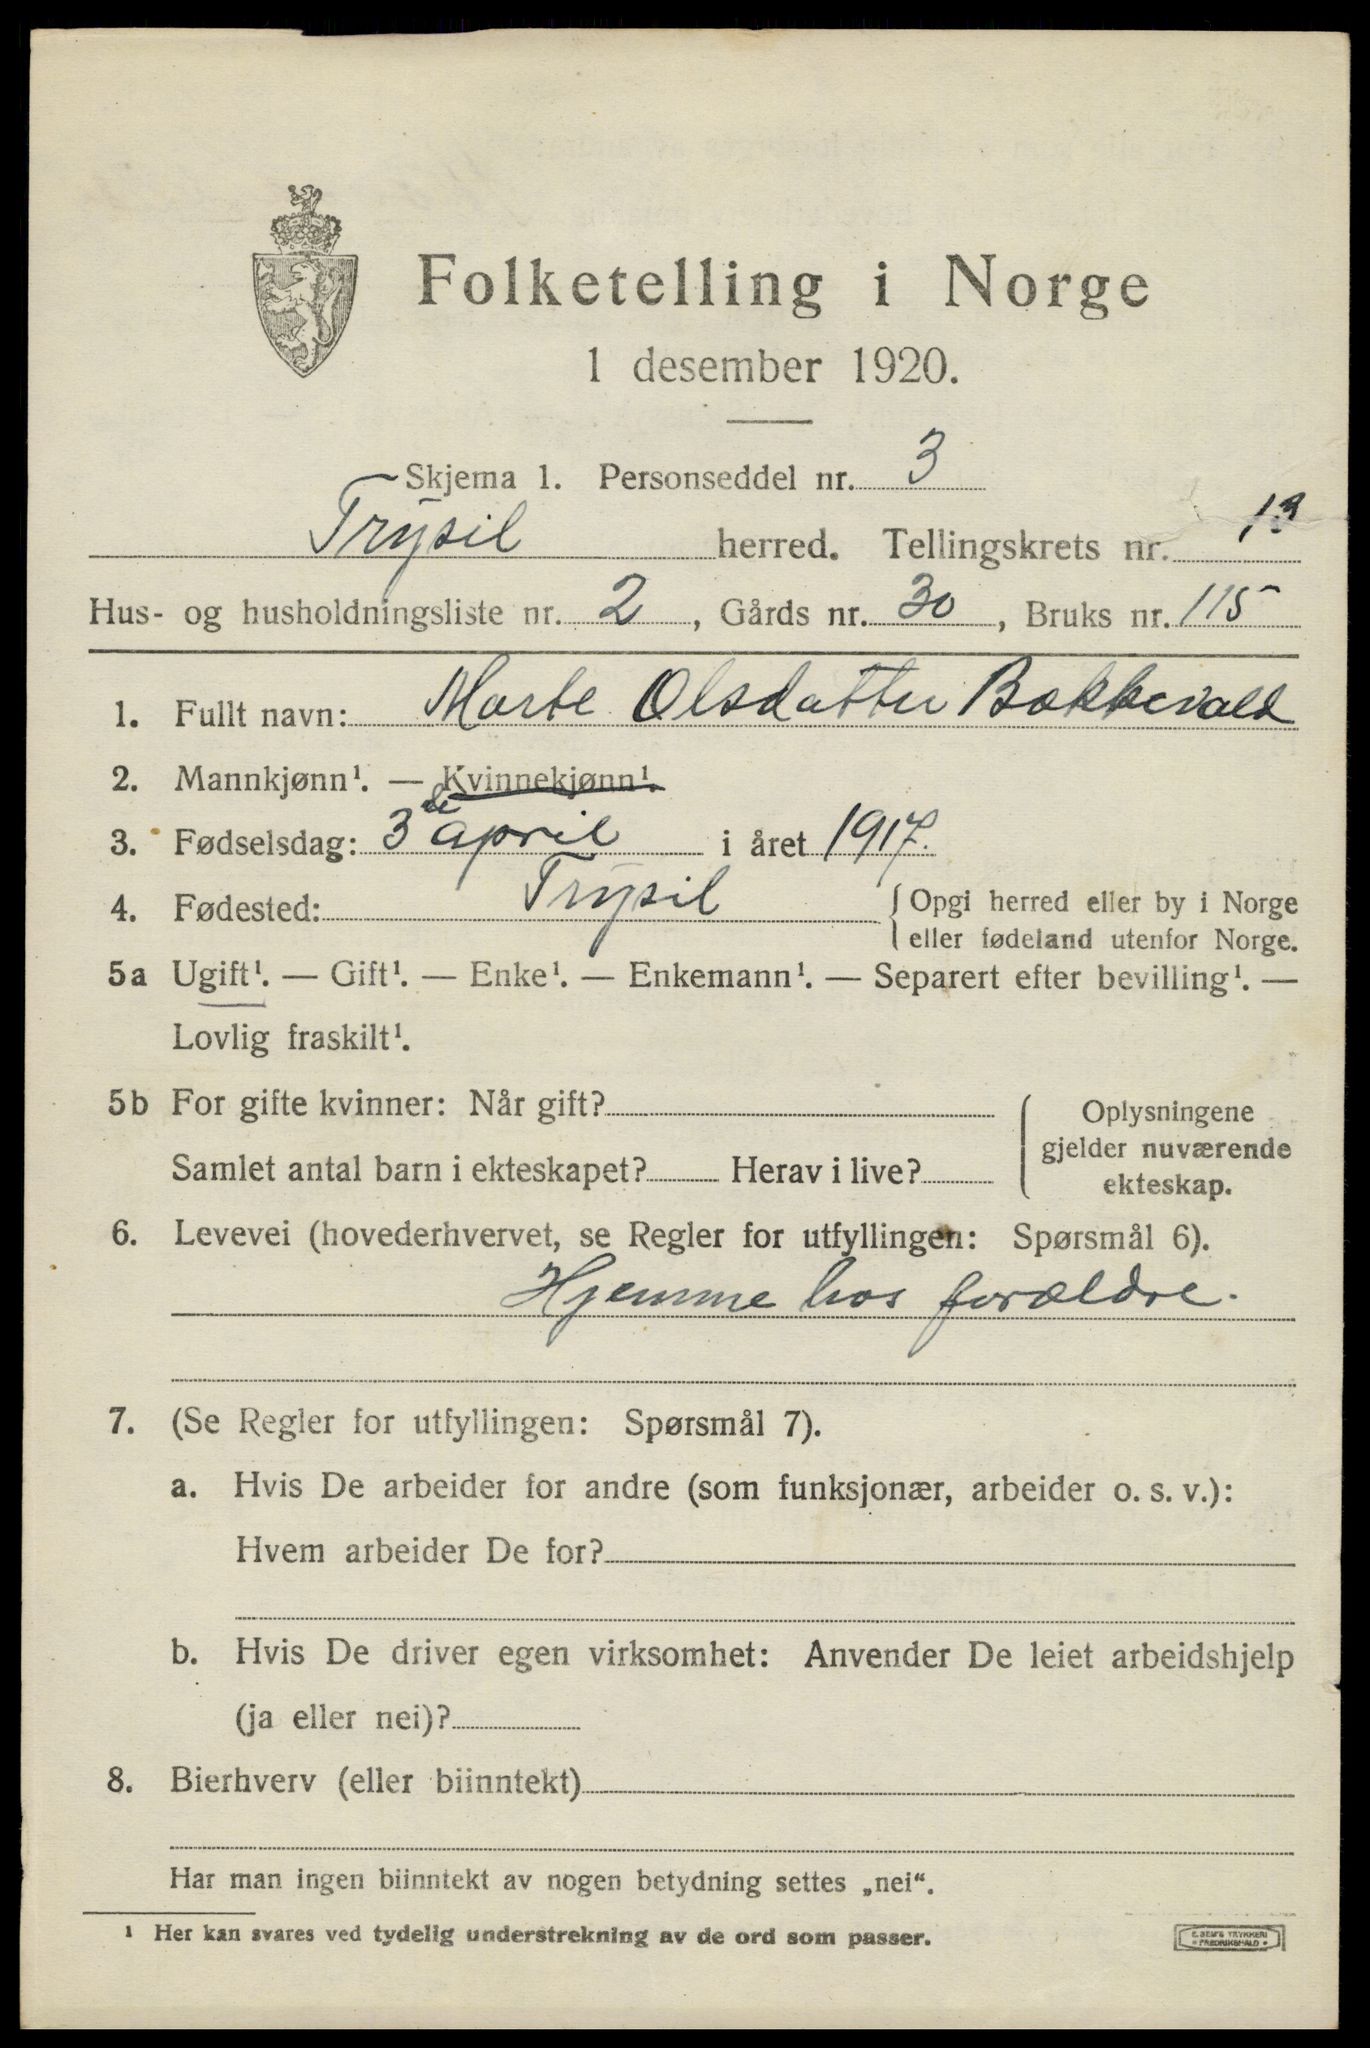 Folketelling i Norge
1 desember 1920.
Skjema 1. Personseddel nr. 3
Trysil herred. Tellingskrets nr. 13
Hus- og husholdningsliste nr. 2, Gårds nr. 30, Bruks nr. 115
1. Fullt navn: Marte Olsdatter Bakkevold
2. Mannkjønn¹. — Kvinnekjønn¹.
3. Fødselsdag: 3de april i året 1917.
4. Fødested: Trysil {Opgi herred eller by i Norge
eller fødeland utenfor Norge.
5a Ugift¹. — Gift¹. — Enke¹. — Enkemann¹. — Separert efter bevilling¹. —
Lovlig fraskilt¹.
5b For gifte kvinner: Når gift? Oplysningene
gjelder nuværende
Samlet antal barn i ekteskapet? Herav i live? ekteskap.
6. Levevei (hovederhvervet, se Regler for utfyllingen: Spørsmål 6).
Hjemme hos forældre.
7. (Se Regler for utfyllingen: Spørsmål 7).
a. Hvis De arbeider for andre (som funksjonær, arbeider o. s. v.):
Hvem arbeider De for?
b. Hvis De driver egen virksomhet: Anvender De leiet arbeidshjelp
(ja eller nei)?
8. Bierhverv (eller biinntekt)
Har man ingen biinntekt av nogen betydning settes „nei“.
¹ Her kan svares ved tydelig understrekning av de ord som passer.
E. SEM'S TRYKKERI
FREDRIKSHALD